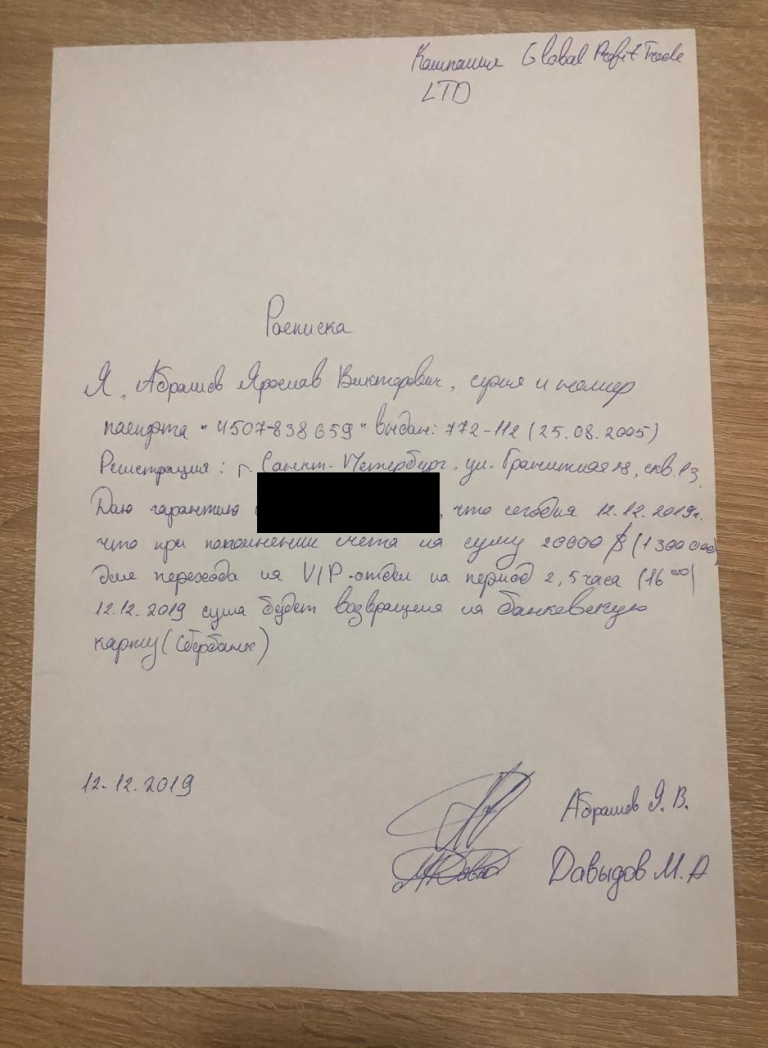 Компания Global Profit Trade
LTD
Расписка
Я, Абрашев Ярослав Викторович, серия и номер
паспорта "4507-838659" выдан: 772-112 (25.08.2005)
Регистрация: г. Санкт-Петербург. ул. Гранитная 18, скв. 13
Даю гарантию что сегодня 12.12.2019г.
что при пополнении счета на сумму 20000 $ (1300000)
для перехода на VIP-отдел на период 2,5 часа (16⁰⁰)
12.12.2019 сумма будет возвращена на банковскую
карту (Сбербанк)
12.12.2019
Абрашев Я. В.
Давыдов М.А